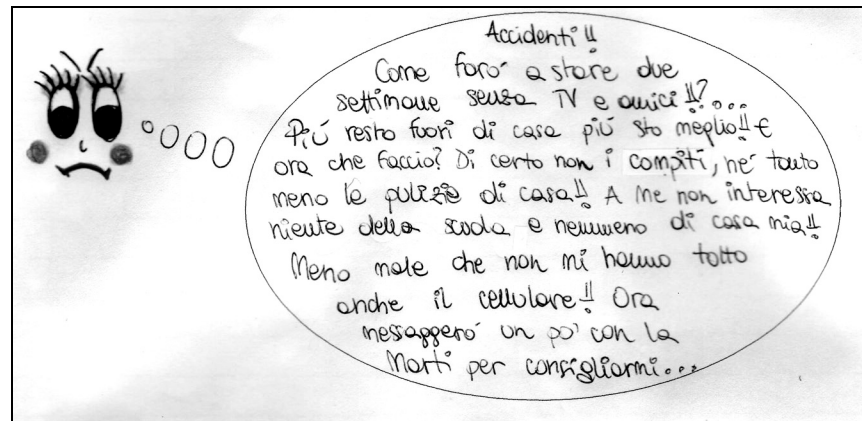 Accidenti!!
Come farò a stare due
settimane senza TV e amici!!?...
Più resto fuori di casa più sto meglio!! E
ora che faccio? Di certo non i compiti, né tanto
meno le pulizie di casa!! A me non interessa
niente della scuola e nemmeno di casa mia!!
Meno male che non mi hanno tolto
anche il cellulare!! Ora
messaggerò un po' con la
Marti per consigliarmi...